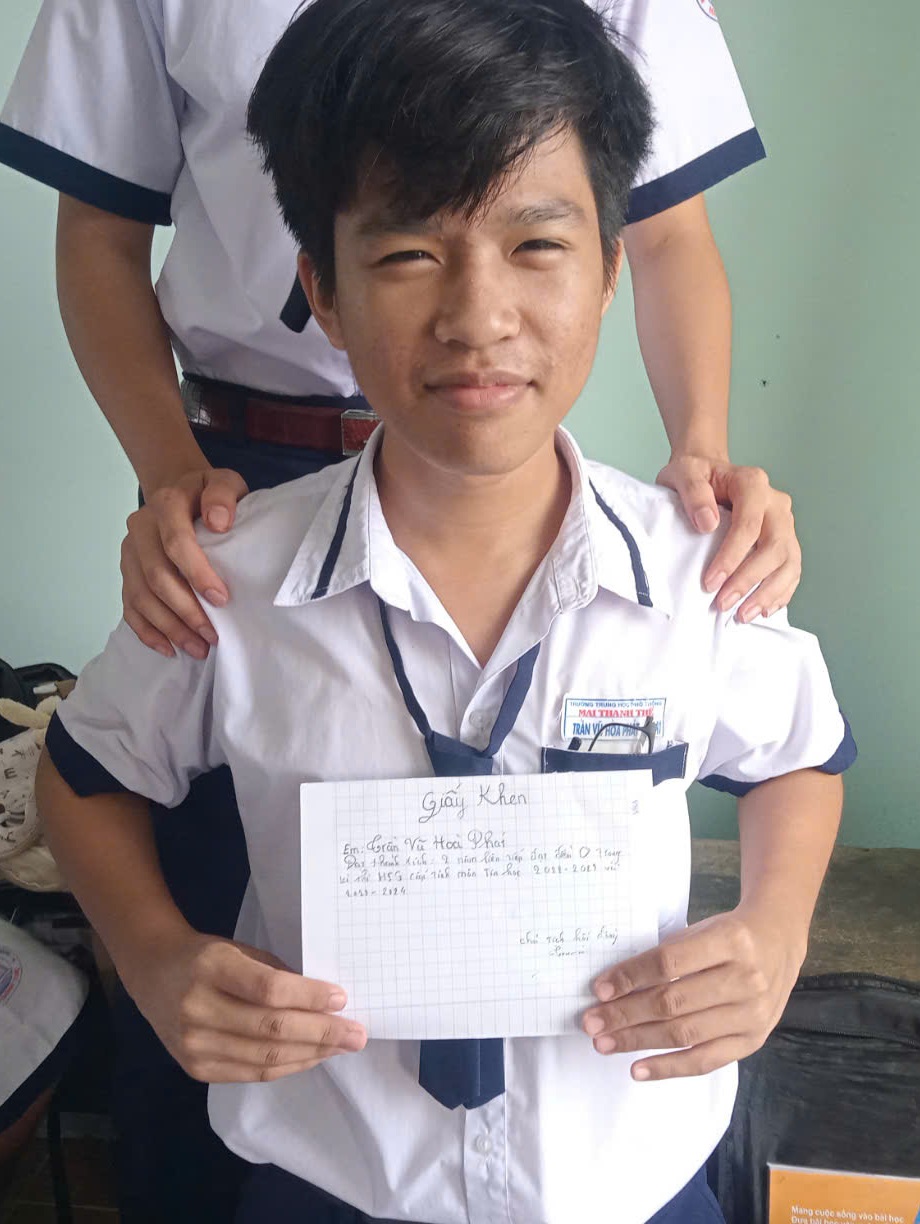 TRƯỜNG TRUNG HỌC PHỔ THÔNG
MAI THANH THẾ
TRẦN VŨ HOÀ PHÁT
Giấy Khen
Em: Trần Vũ Hoà Phát
Đạt thành tích: 2 năm liên tiếp đạt điểm 0 trong
kì thi HSG cấp tỉnh môn Tin học 2022-2023 và
2023-2024
chủ tịch hội đồng
Mang cuộc sống vào bài học